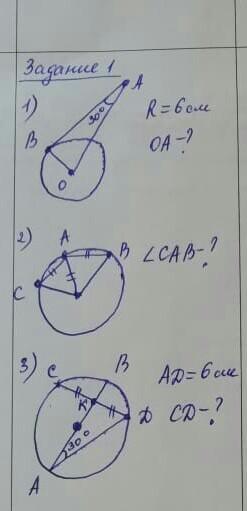 Задание 1
1)
A
30°
B
R = 6 см
OA - ?
O
2)
A
B
∠CAB - ?
C
3)
C
B
AD = 6 см
K
D
CD - ?
30°
A